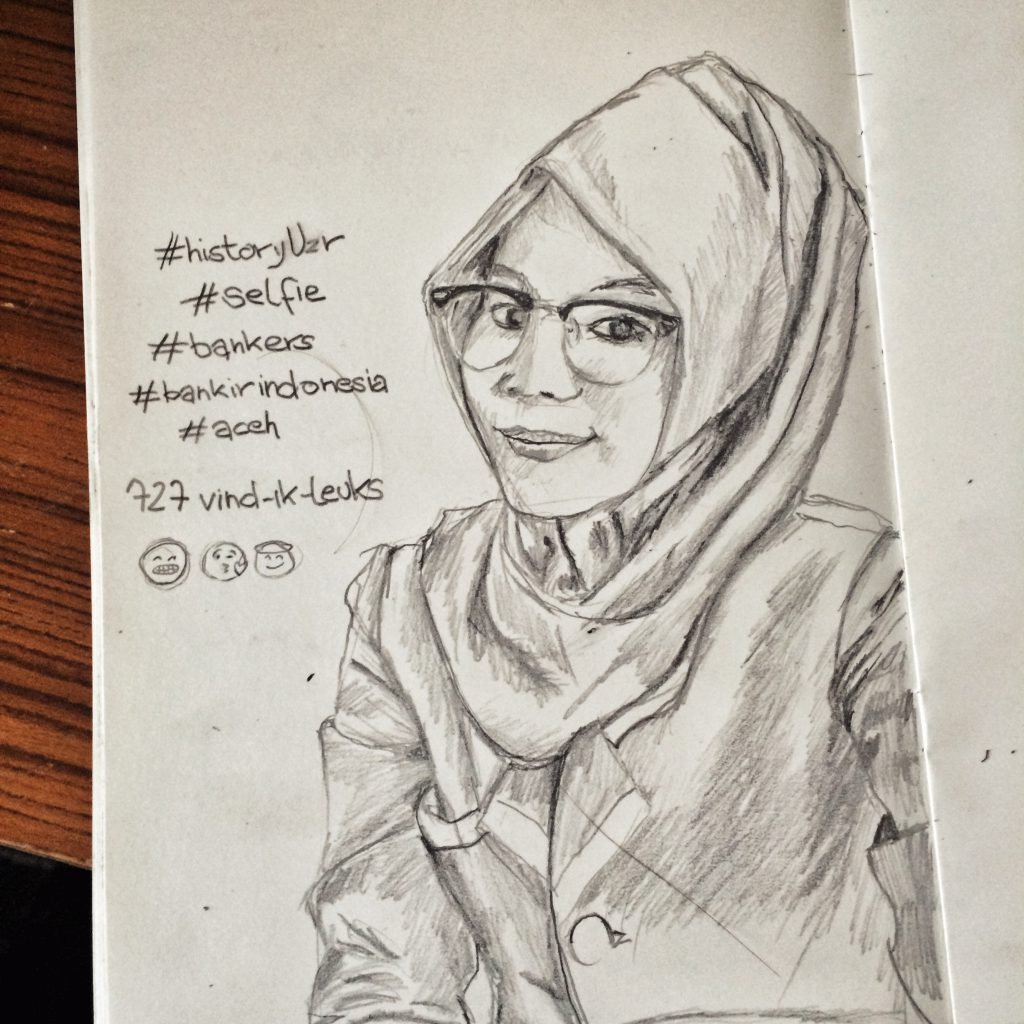 #historyUzr
#selfie
#bankers
#bankirindonesia
#aceh
727 vind-ik-leuks